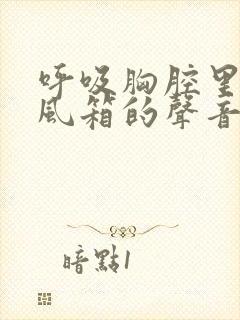 呼吸胸腔里
風箱的聲音
暗點1